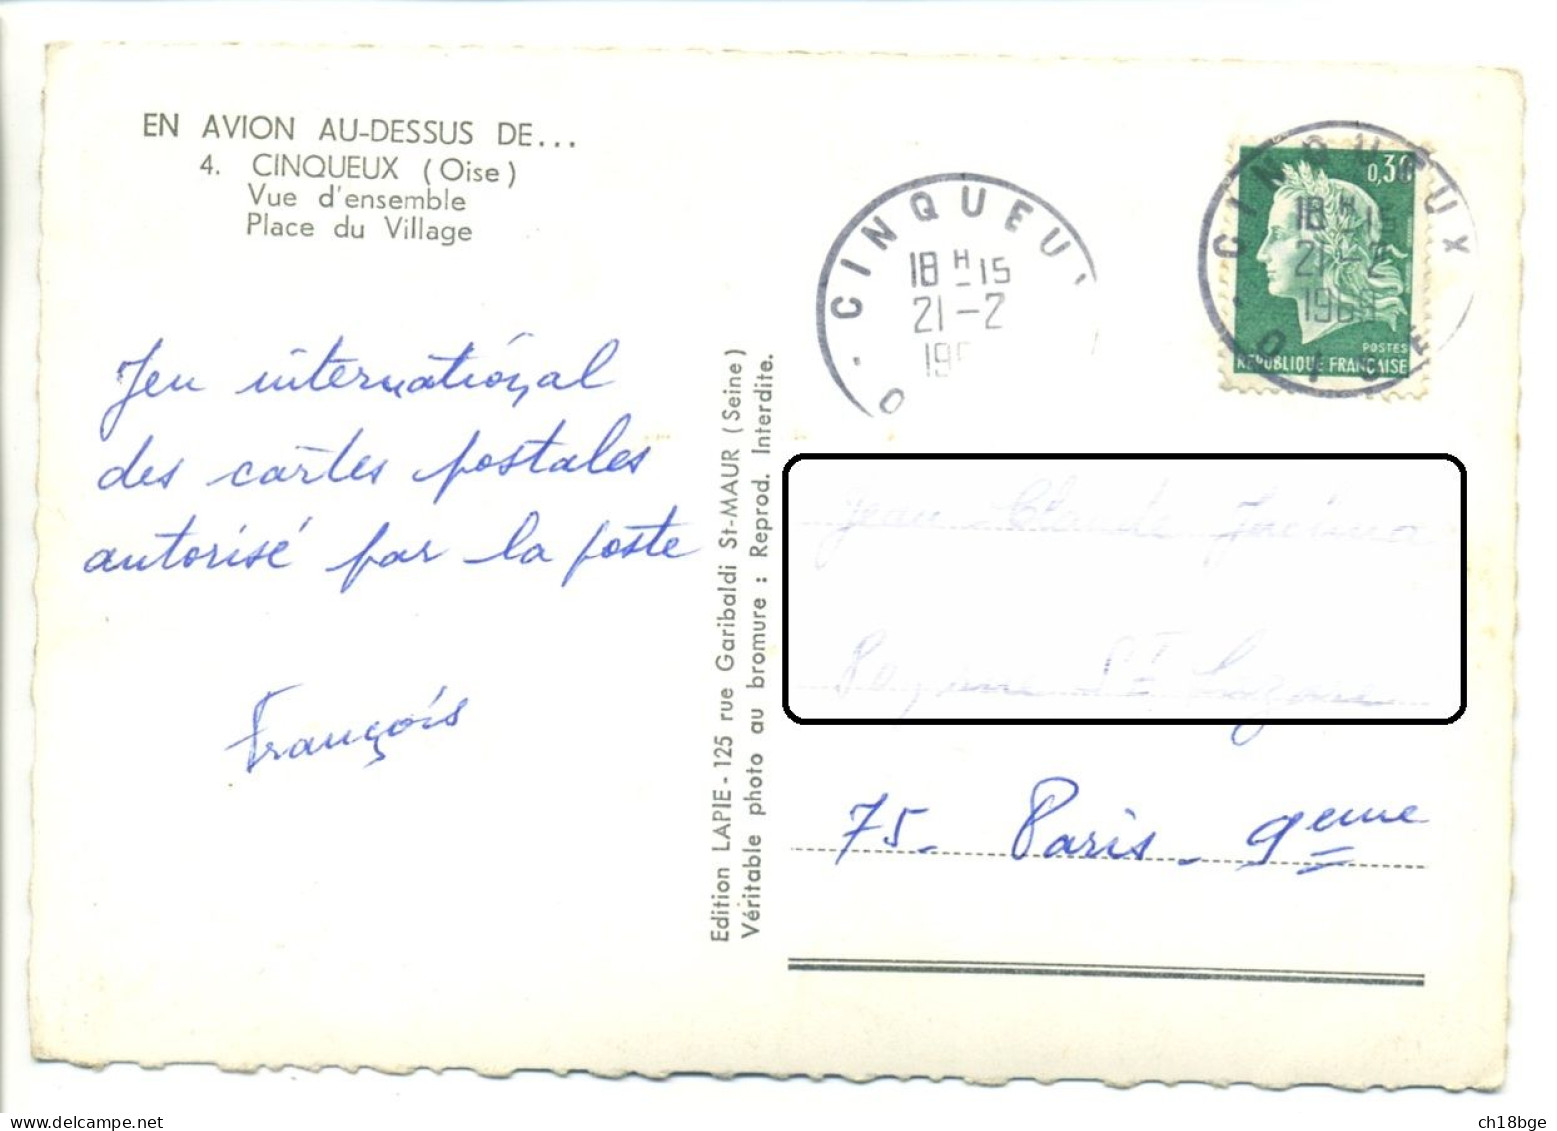 EN AVION AU-DESSUS DE...
4. CINQUEUX (Oise)
Vue d'ensemble
Place du Village
Jeu international
des cartes postales
autorisé par la poste
François
Edition LAPIE - 125 rue Garibaldi St-MAUR (Seine)
Véritable photo au bromure : Reprod. Interdite.
CINQUEU
18 H 15
21-2
O
CINQUEUX
OISE
18 H 15
21-2
1969
0,30
POSTES
REPUBLIQUE FRANÇAISE
Jean Claude
St Lazare
75 - Paris - 9eme
ch18bge